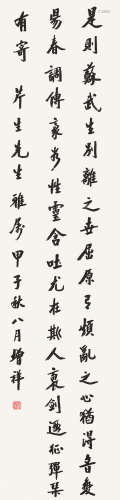 是則蘇武生別離之世屈原有煩亂之心猶得音奏
陽春調傳哀者性靈含吐尤在斯人裏劍遐征彈琴
有寄 芹生先生雅屬 甲子秋八月 增祥